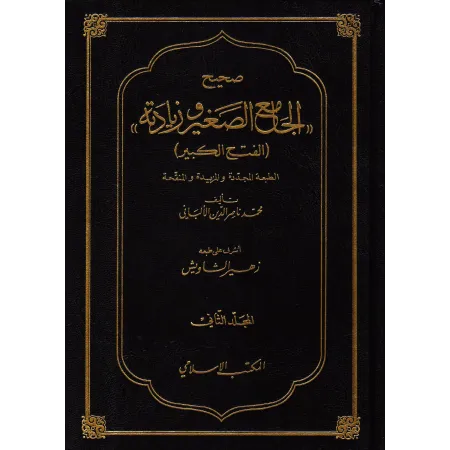 صحيح
«الجامع الصغير وزيادته»
(الفتح الكبير)
الطبعة المجددة والمزيدة والمنقحة
تأليف
محمد ناصر الدين الألباني
أشرف على طبعه
زهير الشاويش
المجلد الثاني
المكتب الإسلامي